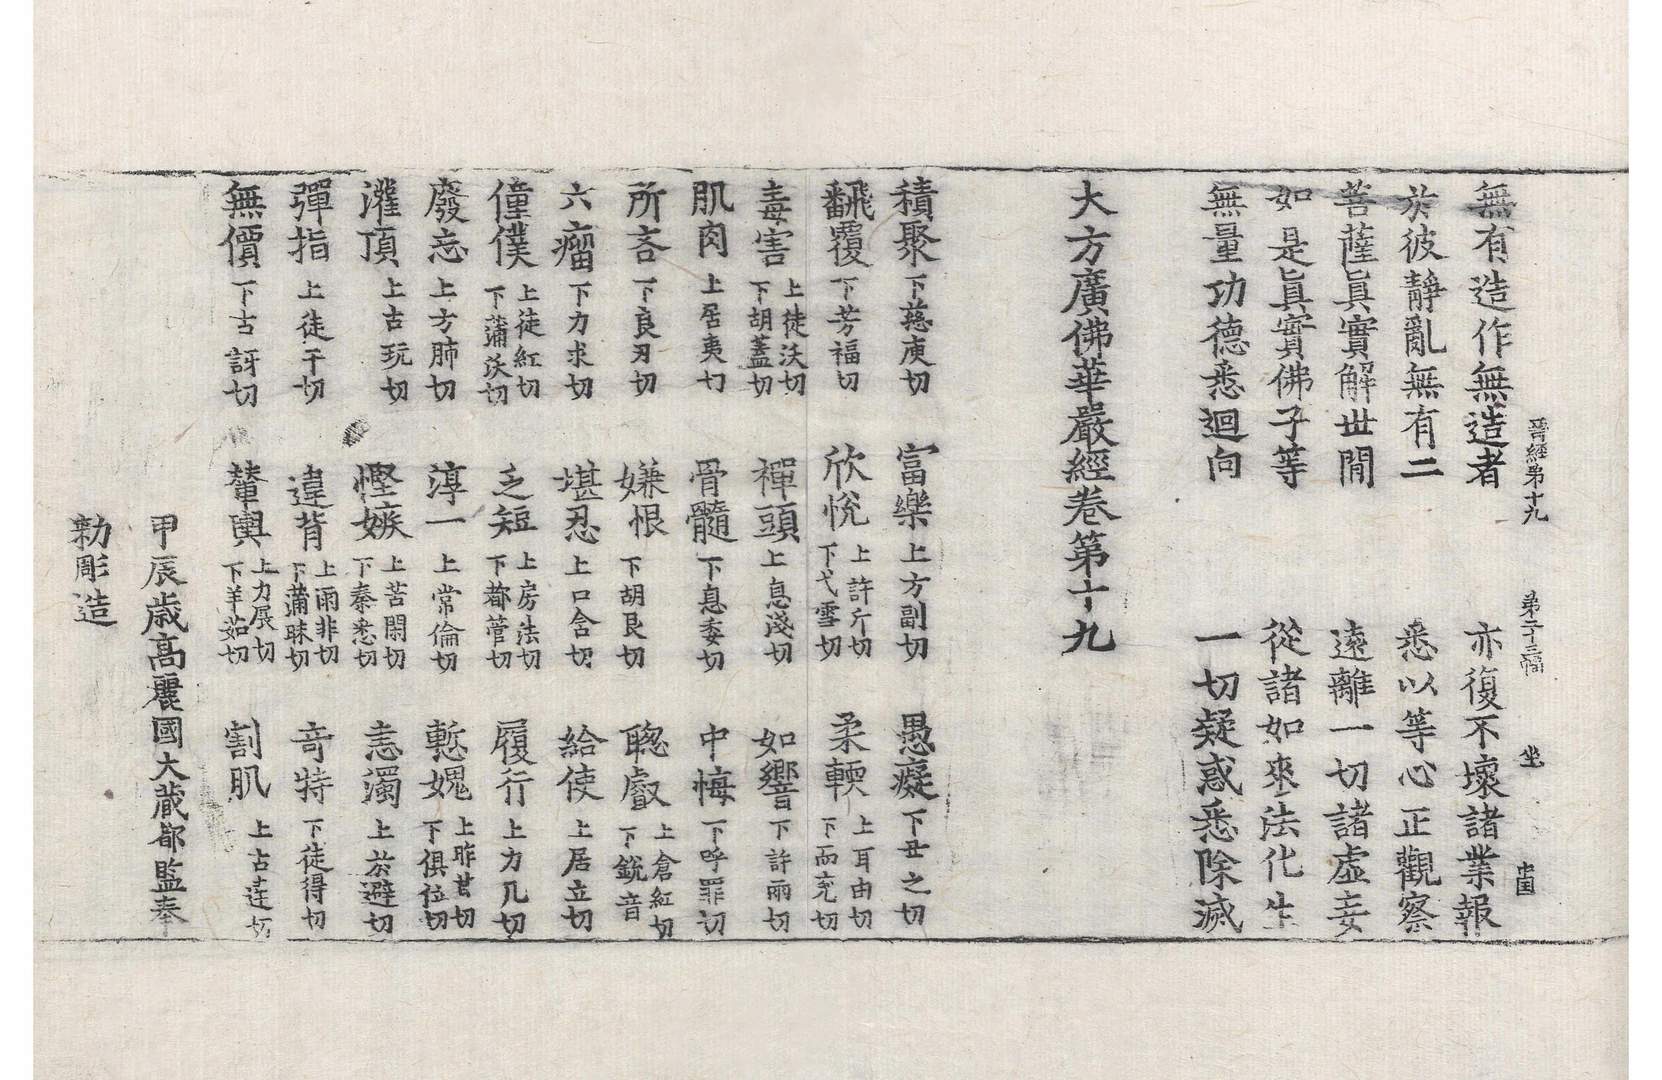 晉經第十九 第二十三幅 坐
無有造作無造者 亦復不壞諸業報
於彼靜亂無有二 悉以等心正觀察
菩薩眞實解世間 遠離一切諸虛妄
如是眞實佛子等 從諸如來法化生
無量功德悉迴向 一切疑惑悉除滅
大方廣佛華嚴經卷第十九
積聚下慈庾切 富樂上方副切 愚癡下丑之切
飜覆下芳福切 欣悅上許斤切下弋雪切 柔輭上耳由切下而兖切
毒害上徒沃切下胡蓋切 襌頭上息淺切 如響下許兩切
肌肉上居夷切 骨髓下息委切 中悔下呼罪切
所吝下良刃切 嫌恨下胡艮切 聦叡上倉紅切下銳音
六瘤下力求切 堪忍上口含切 給使上居立切
僮僕上徒紅切下蒲沃切 乏短上房法切下都管切 履行上力几切
廢忘上方肺切 淳一上常倫切 慙媿上昨甘切下俱位切
灌頂上古玩切 慳嫉上苦閑切下秦悉切 恚濁上於避切
彈指上徒干切 違背上雨非切下蒲昧切 竒特下徒得切
無價下古訝切 輦輿上力展切下羊茹切 割肌上古達切
甲辰歲高麗國大藏都監奉
勅彫造